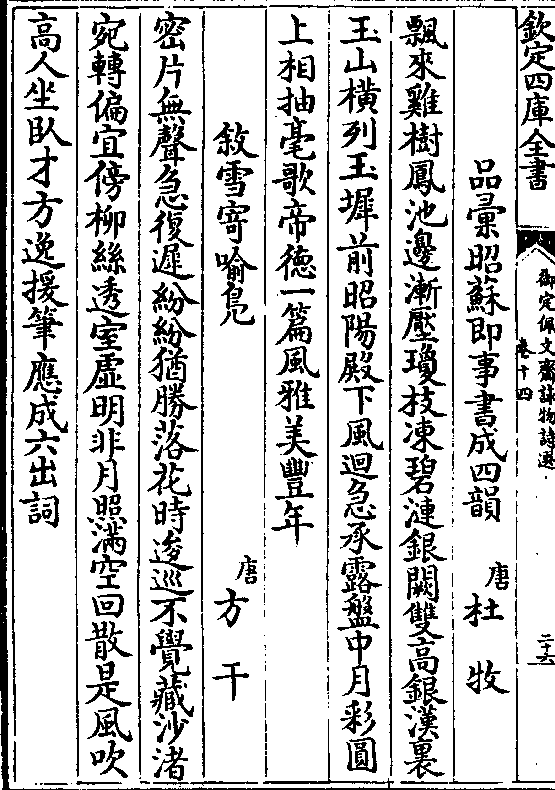 欽定四庫全書
御定佩文齋詠物詩選
卷十四
二十六
品彙昭蘇即事書成四韻 唐 杜牧
飄來雞樹鳳池邊漸壓瓊枝凍碧漣銀闕雙高銀漢裏
玉山橫列玉墀前昭陽殿下風迴急承露盤中月彩圓
上相抽毫歌帝德一篇風雅美豐年
敘雪寄喻鳧 唐 方干
密片無聲急復遲紛紛猶勝落花時逡巡不覺藏沙渚
宛轉偏宜傍柳絲透室虛明非月照滿空回散是風吹
高人坐臥才方逸援筆應成六出詞